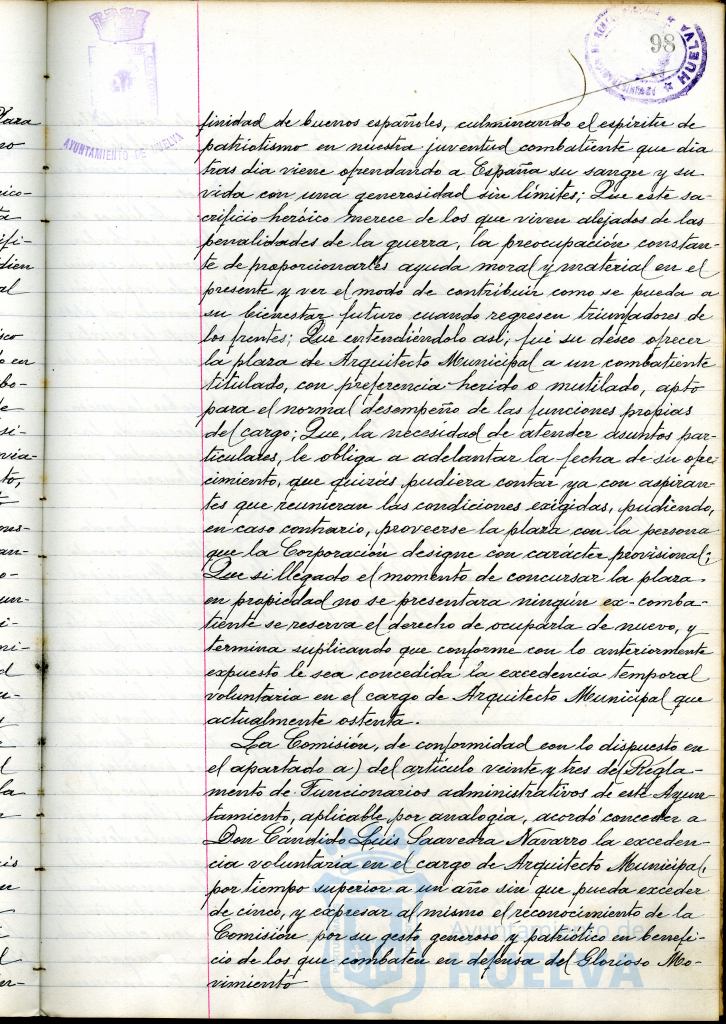 98
HUELVA
AYUNTAMIENTO DE HUELVA
finidad de buenos españoles, culminando el espíritu de
patriotismo en nuestra juventud combatiente que dia
tras dia viene ofrendando a España su sangre y su
vida con una generosidad sin límites; Que este sa-
crificio heróico merece de los que viven alejados de las
penalidades de la guerra, la preocupación constan-
te de proporcionarles ayuda moral y material en el
presente y ver el modo de contribuir como se pueda a
su bienestar futuro cuando regresen triunfadores de
los frentes; Que entendiéndolo asi, fué su deseo ofrecer
la plaza de Arquitecto Municipal a un combatiente
titulado, con preferencia herido o mutilado, apto
para el normal desempeño de las funciones propias
del cargo; Que, la necesidad de atender asuntos par-
ticulares, le obliga a adelantar la fecha de su ofre-
cimiento, que quizas pudiera contar ya con aspiran-
tes que reunieran las condiciones exigidas, pudiendo,
en caso contrario, proveerse la plaza con la persona
que la Corporación designe con carácter provisional;
Que si llegado el momento de concursar la plaza
en propiedad no se presentara ningún ex-comba-
tiente se reserva el derecho de ocuparla de nuevo, y
termina suplicando que conforme con lo anteriormente
expuesto le sea concedida la excedencia temporal
voluntaria en el cargo de Arquitecto Municipal que
actualmente ostenta.
La Comisión, de conformidad con lo dispuesto en
el apartado a) del artículo veinte y tres del Regla-
mento de Funcionarios administrativos de este Ayun-
tamiento, aplicable por analogía, acordó conceder a
Don Cándido Luis Saavedra Navarro la exceden-
cia voluntaria en el cargo de Arquitecto Municipal,
por tiempo superior a un año sin que pueda exceder
de cinco, y expresar al mismo el reconocimiento de la
Comisión por su gesto generoso y patriótico en benefi-
cio de los que combaten en defensa del Glorioso Mo-
vimiento
Ayuntamiento de
HUELVA